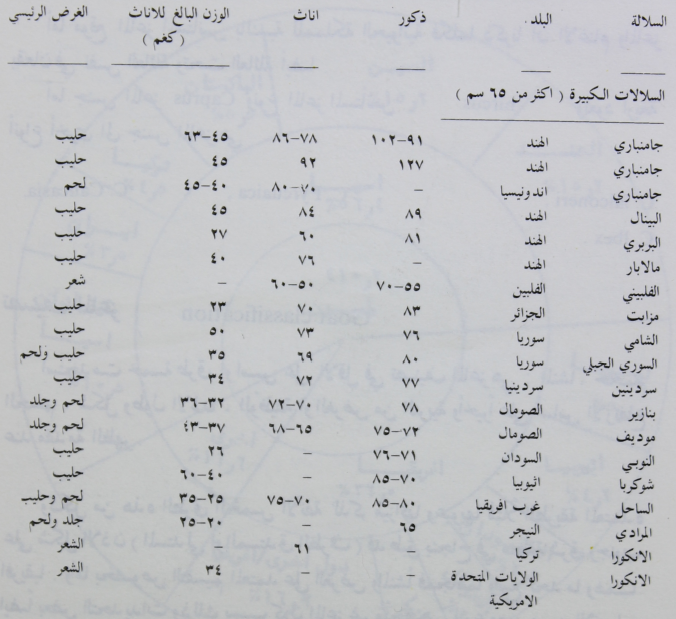 السلالة البلد ذكور اناث الوزن البالغ للاناث الغرض الرئيسي
( كغم )
السلالات الكبيرة ( اكثر من ٦٥ سم )
جامنباري الهند ٩١–١٠٢ ٧٨–٨٦ ٤٥–٦٣ حليب
جامنباري الهند ١٢٧ ٩٢ ٤٥ حليب
جامنباري اندونيسيا – ٧٠–٨٠ ٤٠–٤٥ لحم
البيتال الهند ٨٩ ٨٤ ٤٥ حليب
البربري الهند ٨١ ٦٠ ٢٧ حليب
مالابار الهند – ٧٦ ٤٠ حليب
الفلبيني الفلبين ٥٥–٧٠ ٥٠–٦٠ – شعر
مزابت الجزائر ٨٣ ٧٠ ٢٣ حليب
الشامي سوريا ٧٦ ٧٣ ٥٠ حليب
السوري الجبلي سوريا ٨٠ ٦٩ ٣٥ حليب ولحم
سردينين سردينيا ٧٧ ٧٢ ٣٤ حليب
بنازير الصومال ٧٨ ٧٠–٧٣ ٣٢–٣٦ لحم وجلد
موديف الصومال ٧٢–٧٥ ٦٥–٦٨ ٣٧–٤٣ لحم وجلد
النوبي السودان ٧١–٧٦ – ٢٦ حليب
شوكريا اثيوبيا ٧٠–٨٥ – ٤٠–٦٠ حليب
الساحل غرب افريقيا ٨٠–٨٥ ٧٠–٧٥ ٢٥–٣٥ لحم وحليب
المرادي النيجر ٦٥ – ٢٠–٢٥ جلد ولحم
الانكورا تركيا – ٦١ – الشعر
الانكورا الولايات المتحدة – – ٣٤ الشعر
الامريكية